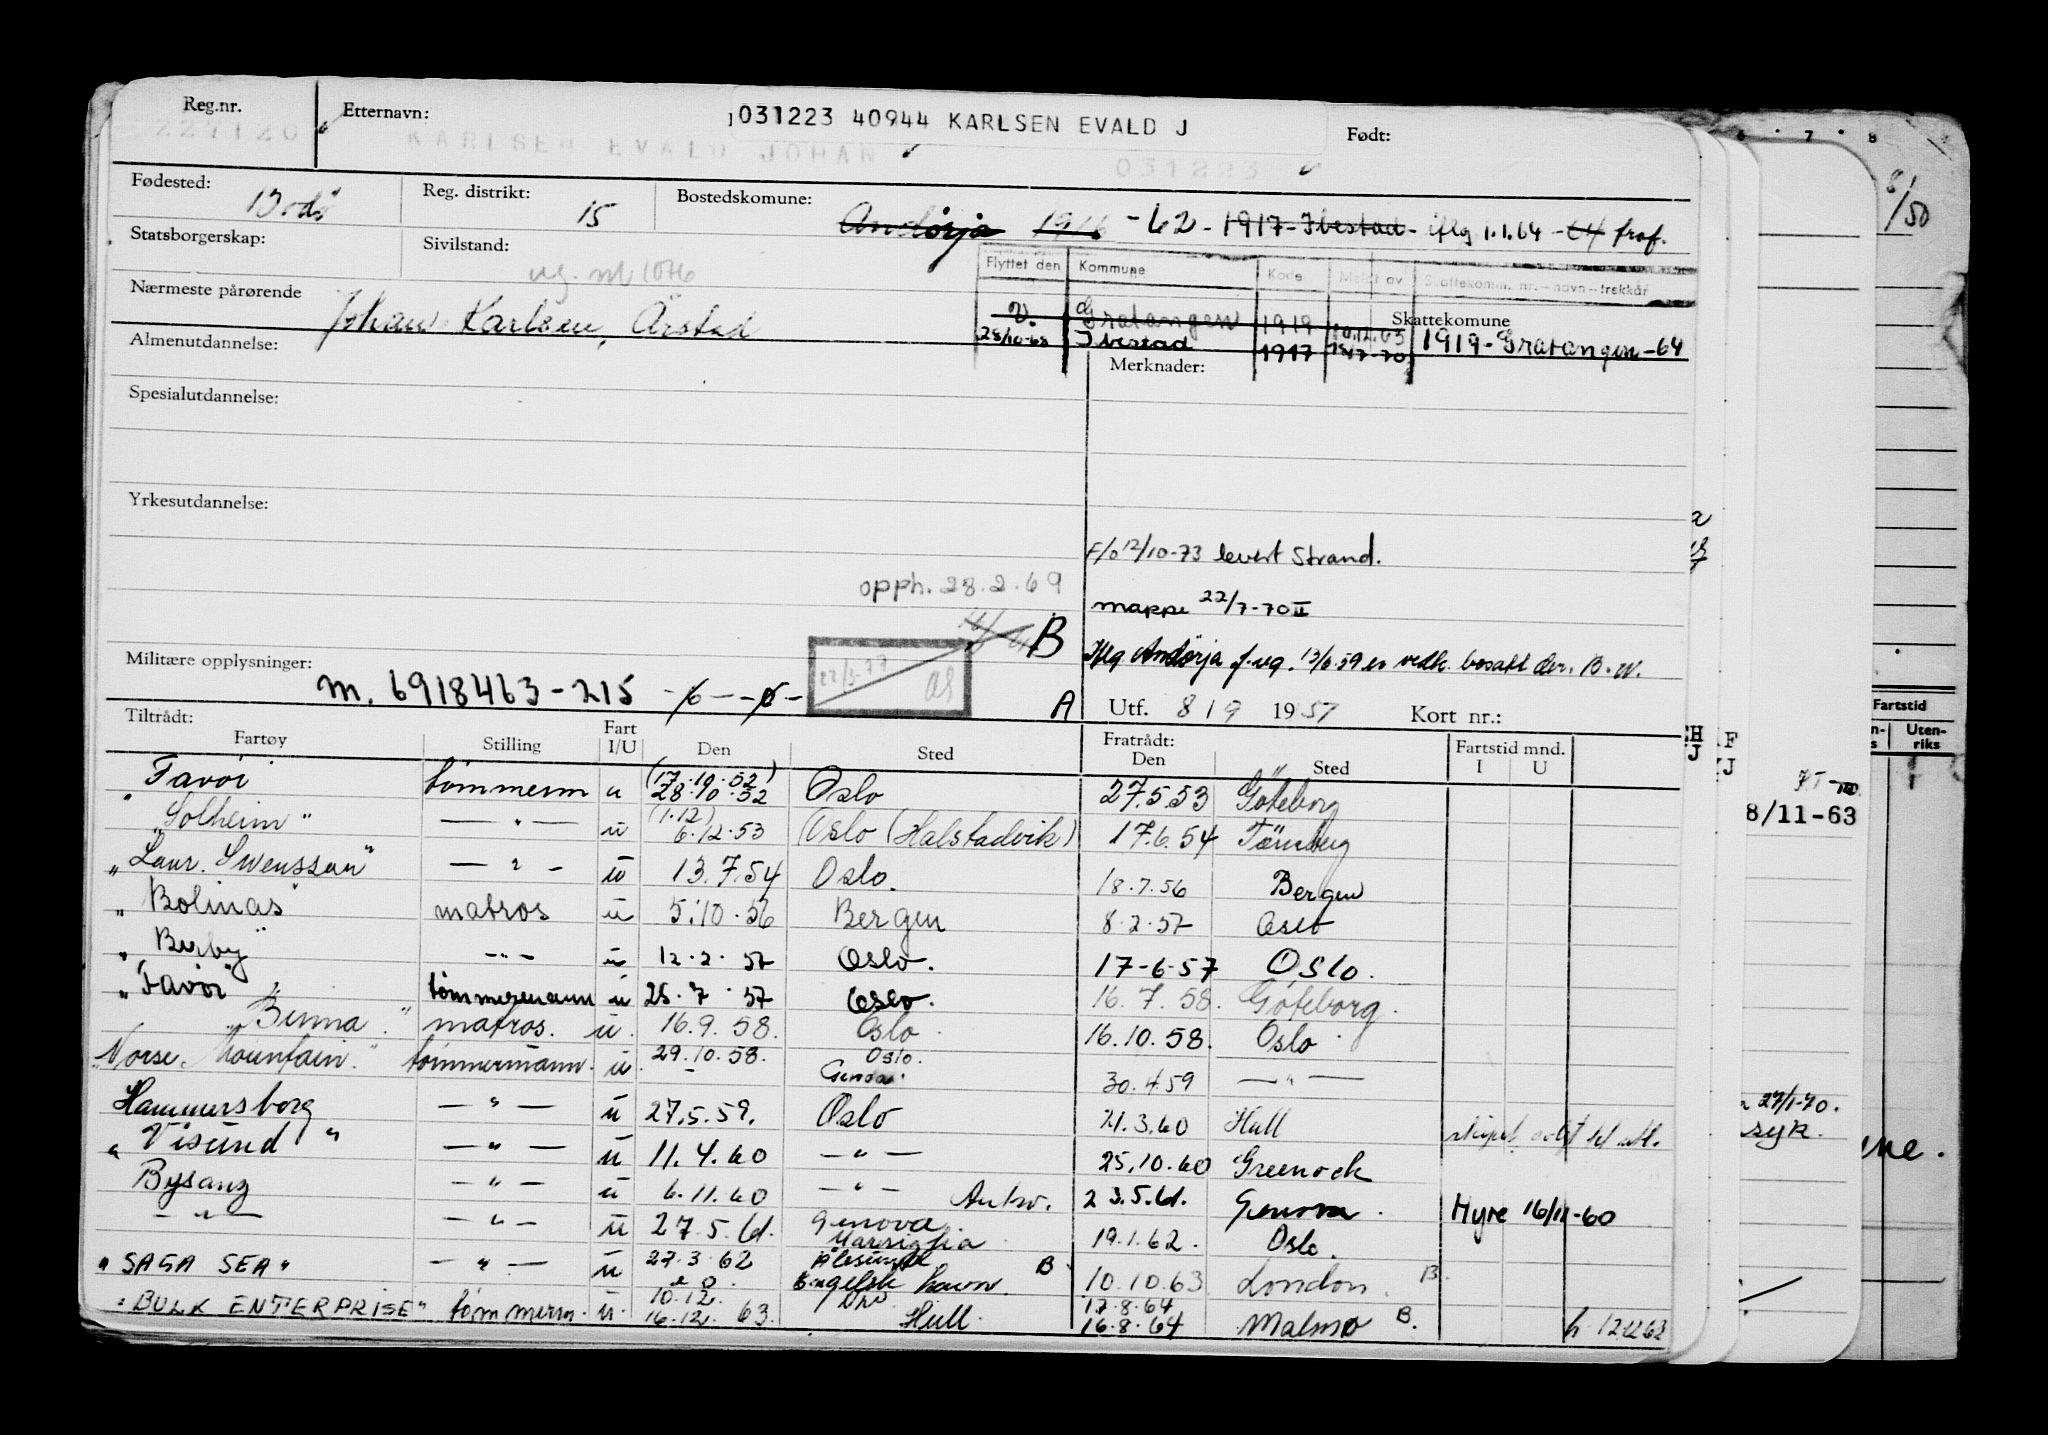 Reg.nr. Etternavn: 031223 40944 KARLSEN EVALD J Født:
227120 KARLSEN EVALD JOHAN 031223
Fødested: Bodø Reg. distrikt: 15 Bostedskomune: Andørja - 62 - 1917 - Ibestad - iflg 1.1.64 - 64 fraf.
Statsborgerskap: Sivilstand:
Flyttet den Kommune Kode Meldt av Skattekomm. nr. - navn - trekkår
Nærmeste pårørende Johan Karlsen, Årstad
Gratangen 1919 Skattekomune
28/10-68 Ibestad 1917 1919 - Gratangen - 64
Almenutdannelse: Merknader:
Spesialutdannelse:
Yrkesutdannelse:
F/o 12/10-73 levert Strand.
opph. 28.2.69
mappe 22/7-70 II
B
Iflg Andørja f.reg. 13/6.59 er vedk. bosatt der. B.W.
Militære opplysninger: m. 6918463-215 - 6 - - 6 - 
A Utf. 8/9 1957 Kort nr.:
Tiltrådt: Fratrådt:
Fartøy Stilling Fart I/U Den Sted Den Sted Fartstid mnd. I U
Favør tømmerm u (17.10.52) 28.10.52 Oslo 27.5.53 Göteborg
"Solheim" — " — u (1.12) 6.12.53 Oslo (Halstadvik) 17.6.54 Tønsberg
"Laur. Swensson" — " — u 13.7.54 Oslo. 18.7.56 Bergen
"Bolinas" matros u 5.10.56 Bergen 8.2.57 Oslo
"Burby" - " - u 12.2.57 Oslo. 17-6-57 Oslo.
"Favør" tømmermann u 25.7.57 Oslo. 16.7.58. Göteborg.
"Binna." matros. u. 16.9.58. Oslo. 16.10.58. Oslo.
"Norse Mountain." tømmermann. u. 29.10.58. Oslo.
Genoa. 30.4.59 — " —
Hammersborg — " — u 27.5.59. Oslo 21.3.60 Hull
"Visund" — " — u 11.4.60 — " — 25.10.60 Greenock
Bysanz — " — u 6.11.60 — " — Antw. 23.5.61. Genova. Myre 16/11-60
— " — — " — u 27.5.61. Genova. Marsiglia 19.1.62. Oslo.
"SAGA SEA" — " — u 27.3.62 Ålesund B. 10.10.63 London. B.
Engelsk havn.
"BULK ENTERPRISE" tømmerm. u. 10.12. 16.12. 63. Oslo Hull. 17.8.64 16.8.64 Malmø B. h. 12.12.63
6 . 7 . 8
8/50
Fartstid
Uten-riks
8/11-63
27/1-70.
syk.